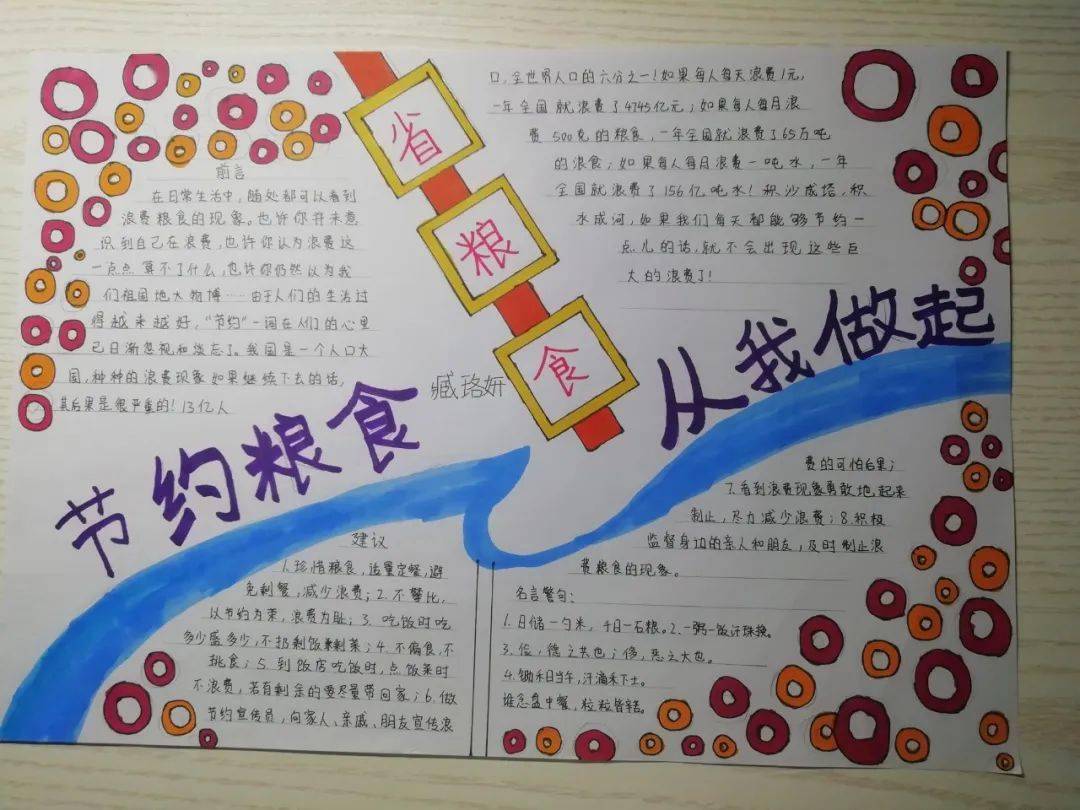 省
粮
食
节约粮食
从我做起
臧珞妍
前言
在日常生活中，随处都可以看到
浪费粮食的现象。也许你并未意
识到自己在浪费，也许你认为浪费这
一点点算不了什么，也许你仍然认为我
们祖国地大物博……由于人们的生活过
得越来越好，“节约”一词在人们的心里
已日渐忽视和淡忘了。我国是一个人口大
国，种种的浪费现象如果继续下去的话，
其后果是很严重的！13亿人
口，全世界人口的六分之一！如果每人每天浪费1元，
一年全国就浪费了4745亿元；如果每人每月浪
费500克的粮食，一年全国就浪费了65万吨
的浪食；如果每人每月浪费一吨水，一年
全国就浪费了156亿吨水！积沙成塔，积
水成河，如果我们每天都能够节约一
点儿的话，就不会出现这些巨
大的浪费了！
建议
1.珍惜粮食，适量定餐，避
免剩餐，减少浪费；2.不攀比，
以节约为荣，浪费为耻；3.吃饭时吃
多少盛多少，不扔剩饭剩菜；4.不偏食，不
挑食；5.到饭店吃饭时，点饭菜时
不浪费，若有剩余的要尽量带回家；6.做
节约宣传员，向家人、亲戚、朋友宣传浪
费的可怕后果；
7.看到浪费现象勇敢地起来
制止，尽力减少浪费；8.积极
监督身边的亲人和朋友，及时制止浪
费粮食的现象。
名言警句：
1.日储一勺米，千日一石粮。2.一粥一饭汗珠换。
3.俭，德之共也；侈，恶之大也。
4.锄禾日当午，汗滴禾下土。
谁念盘中餐，粒粒皆辛苦。